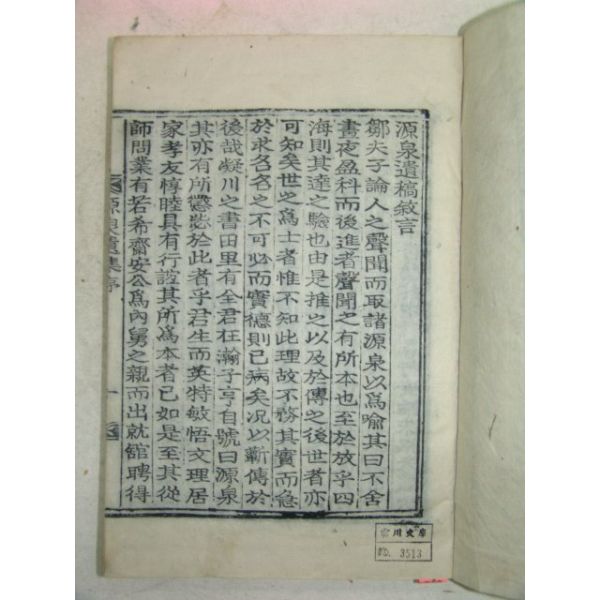 源泉遺稿敘言
鄒夫子論人之聲聞而取諸源泉以爲喩其曰不舍
晝夜盈科而後進者聲聞之有所本也至於放乎四
海則其達之驗也由是推之以及於傳之後世者亦
可知矣世之爲士者惟不知此理故不務其實而急
於求名名之不可必而實德則已病矣况以蘄傳於
後哉凝川之書田里有全君在瀚子亨自號曰源泉
其亦有所懲毖於此者乎君生而英特敏悟文理居
家孝友惇睦具有行誼其所爲本者已如是至其從
師問業有若希齋安公爲內舅之親而出就舘聘得
源泉遺集序
一
川文庫
NO. 3513